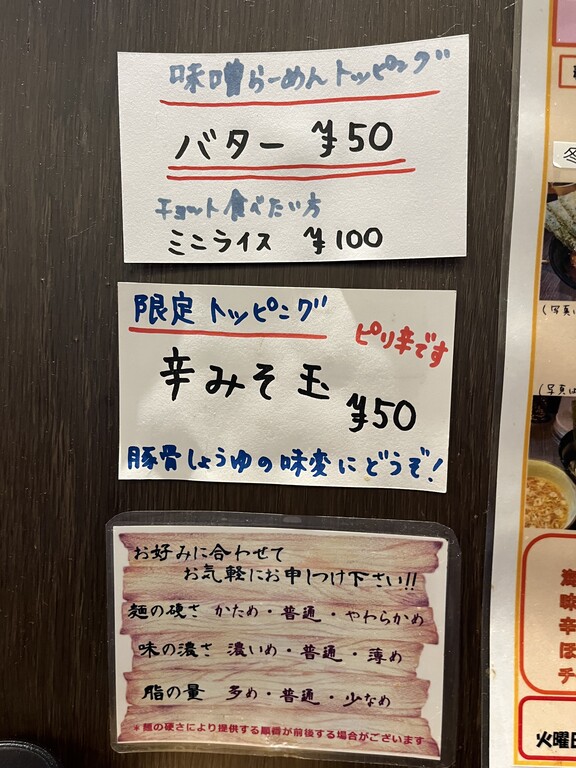 味噌らーめんトッピング
バター ¥50
チョット食べたい方
ミニライス ¥100
限定トッピング
ピリ辛です
辛みそ玉
¥50
豚骨しょうゆの味変にどうぞ!
お好みに合わせて
お気軽にお申しつけ下さい!!
麺の硬さ かため・普通・やわらかめ
味の濃さ 濃いめ・普通・薄め
脂の量 多め・普通・少なめ
*麺の硬さにより提供する順番が前後する場合がございます
冬
(写真は
(写真は
味
辛
ほ
チ
火曜日